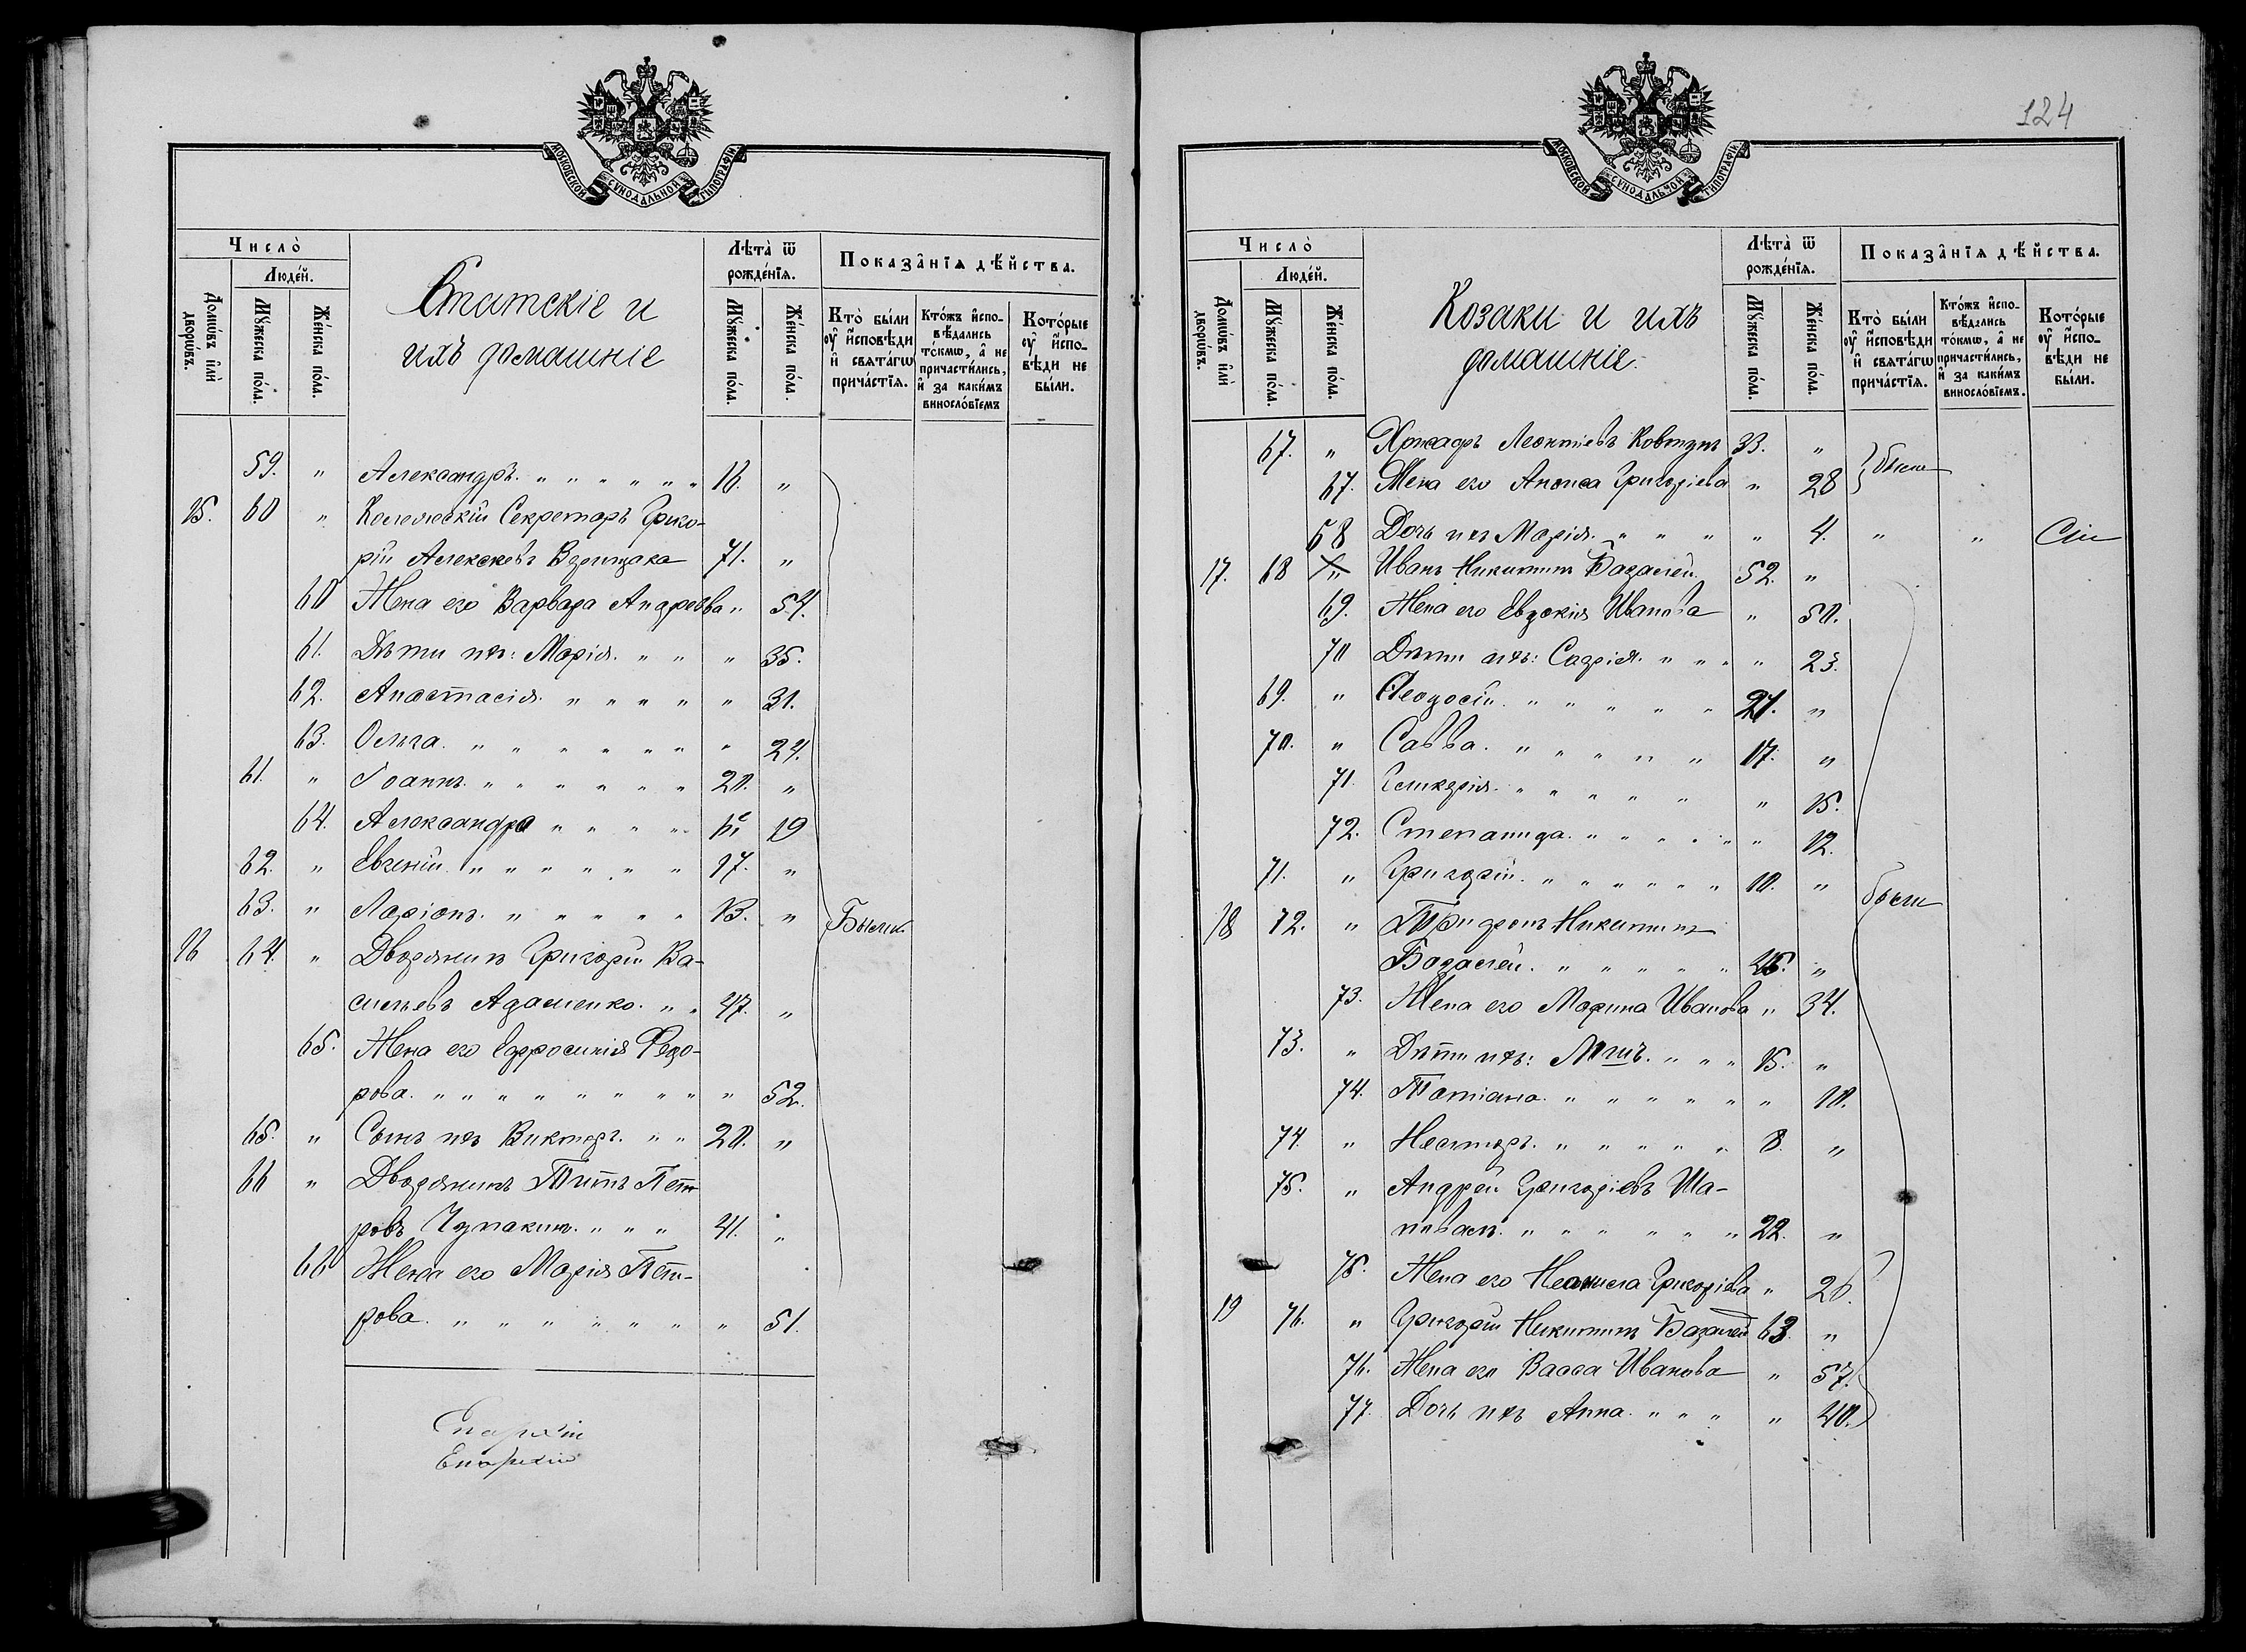 МОСКОВСКОЙ СѴНОДАЛЬНОЙ ТИПОГРАФІИ
Число̀
Люде́й.
Домѡ́въ и҆лѝ дворѡ́въ.
Мꙋ́жеска по́ла.
Же́нска по́ла.
Статскіе и
ихъ домашніе
Лѣта̀ ѿ рожде́нїѧ.
Мꙋ́жеска по́ла.
Же́нска по́ла.
Показа̂нїѧ дѣ́йства.
Кто̀ бы́ли ᲂу҆ и҆́сповѣди и҆ свѧта́гѡ прича́стїѧ.
Кто́жъ и҆спо-вѣ́дались то́кмѡ, а҆ не причасти́лись, и҆ за каки́мъ виносло́вїемъ
Кото́рые ᲂу҆ и҆́спо-вѣди не бы́ли.
59. " Александръ. " " " " " " 18. "
15. 60 " Коллежскій Секретарь Григо-
рій Алексѣевъ 71. "
60 Жена его Варвара Андреева " 54.
61. Дѣти ихъ: Марія. " " " 35.
62. Анастасія. " " " " " 31.
63. Ольга. " " " " " " " 24.
61. " Іоаннъ. " " " " " " 20. "
64. Александра " " " " " 19
62. " Евгеній. " " " " " " 17. "
63. " Ларіонъ. " " " " " 13. " Были.
16 64. " Дворянинъ Григорій Ва-
сильевъ Адаменко. " " 47. "
65. Жена его Ефросинія Федо-
рова. " " " " " " " " " 52.
65. " Сынъ ихъ Викторъ. " " 20. "
66 " Дворянинъ Титъ Пет-
ровъ Чупакинъ. " " " 41. "
66 Жена его Марія Пет-
рова. " " " " " " " " 51.
Епархіи
Епархіи
124
МОСКОВСКОЙ СѴНОДАЛЬНОЙ ТИПОГРАФІИ
Число̀
Люде́й.
Домѡ́въ и҆лѝ дворѡ́въ.
Мꙋ́жеска по́ла.
Же́нска по́ла.
Козаки и ихъ
домашніе.
Лѣта̀ ѿ рожде́нїѧ.
Мꙋ́жеска по́ла.
Же́нска по́ла.
Показа̂нїѧ дѣ́йства.
Кто̀ бы́ли ᲂу҆ и҆́сповѣди и҆ свѧта́гѡ прича́стїѧ.
Кто́жъ и҆спо-вѣ́дались то́кмѡ, а҆ не причасти́лись, и҆ за каки́мъ виносло́вїемъ.
Кото́рые ᲂу҆ и҆́спо-вѣди не бы́ли.
67. " Леонтіевъ Ковтунъ 33. " были
67. Жена его Григоріева " 28
68 Дочь ихъ Марія. " " " " 4. " "
17. 68 " Иванъ Никитинъ Базалей 52. "
69. Жена его Евдокія Иванова " 50.
70 Дѣти ихъ: " " " " 23.
69. " Феодосій. " " " " " " 21. "
70. " Савва. " " " " " " 17. "
71. Гликерія. " " " " " " 15.
72. Степанида. " " " " " " 12.
71. " Григорій. " " " " " " 10. " были
18 72. " Никитинъ
Базалей. " " " " " 45. "
73. Жена его Марина Иванова " 34.
73. " Дѣти ихъ: " " " 15. "
74. Татіана. " " " " " " 10.
74. " Несторъ. " " " " " 8. "
75. " Андрей Григоріевъ Ша-
повалъ. " " " " " " 22. "
75. Жена его Григоріева " 26.
19 76. " Григорій Никитинъ Базалей 63. "
76. Жена его Васса Иванова " 57.
77. Дочь ихъ Анна. " " " " 40.